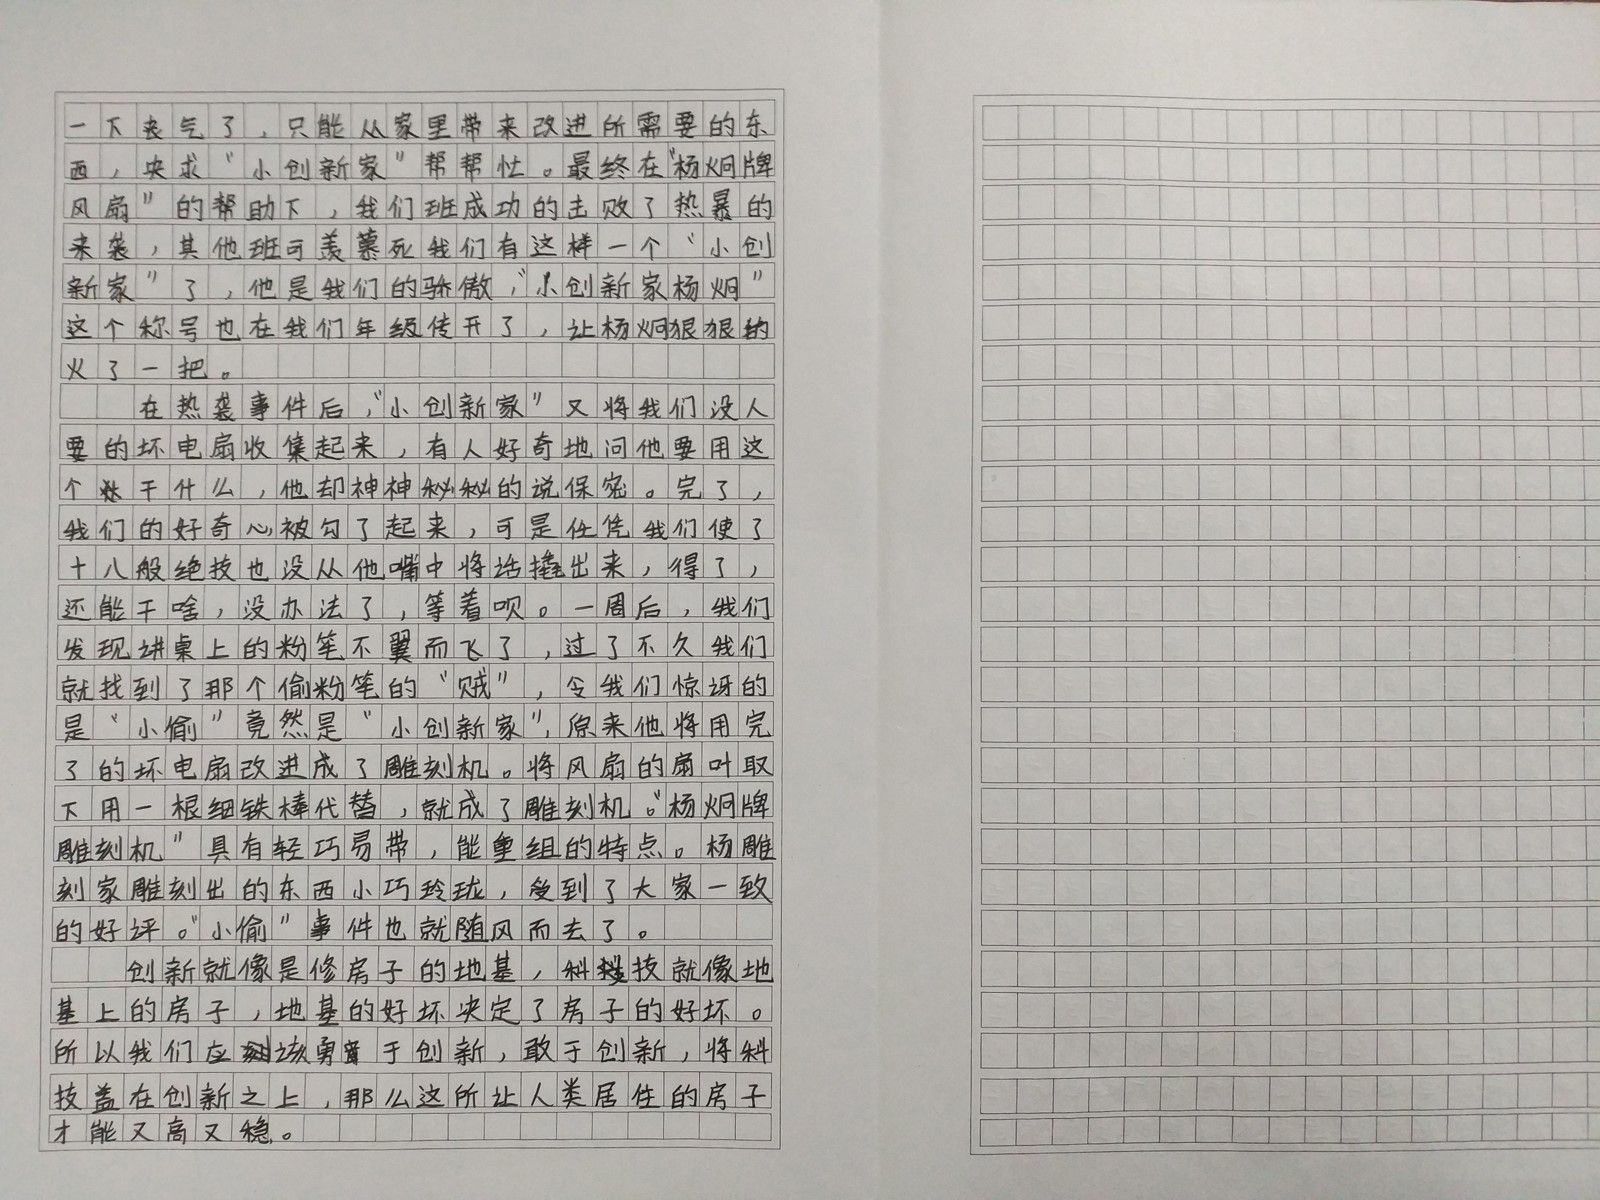 一下丧气了，只能从家里带来改进所需要的东
西，央求“小创新家”帮帮忙。最终在“杨炯牌
风扇”的帮助下，我们班成功的击败了热暴的
来袭，其他班可羡慕死我们有这样一个“小创
新家”了，他是我们的骄傲，“小创新家杨炯”
这个称号也在我们年级传开了，让杨炯狠狠的
火了一把。
在热袭事件后，“小创新家”又将我们没人
要的坏电扇收集起来，有人好奇地问他要用这
个干什么，他却神神秘秘的说保密。完了，
我们的好奇心被勾了起来，可是任凭我们使了
十八般绝技也没从他嘴中将话撬出来，得了，
还能干啥，没办法了，等着呗。一周后，我们
发现讲桌上的粉笔不翼而飞了，过了不久我们
就找到了那个偷粉笔的“贼”，令我们惊讶的
是“小偷”竟然是“小创新家”，原来他将用完
了的坏电扇改进成了雕刻机。将风扇的扇叶取
下用一根细铁棒代替，就成了雕刻机。“杨炯牌
雕刻机”具有轻巧易带，能重组的特点。杨雕
刻家雕刻出的东西小巧玲珑，受到了大家一致
的好评。“小偷”事件也就随风而去了。
创新就像是修房子的地基，科技就像地
基上的房子，地基的好坏决定了房子的好坏。
所以我们应该勇于创新，敢于创新，将科
技盖在创新之上，那么这所让人类居住的房子
才能又高又稳。